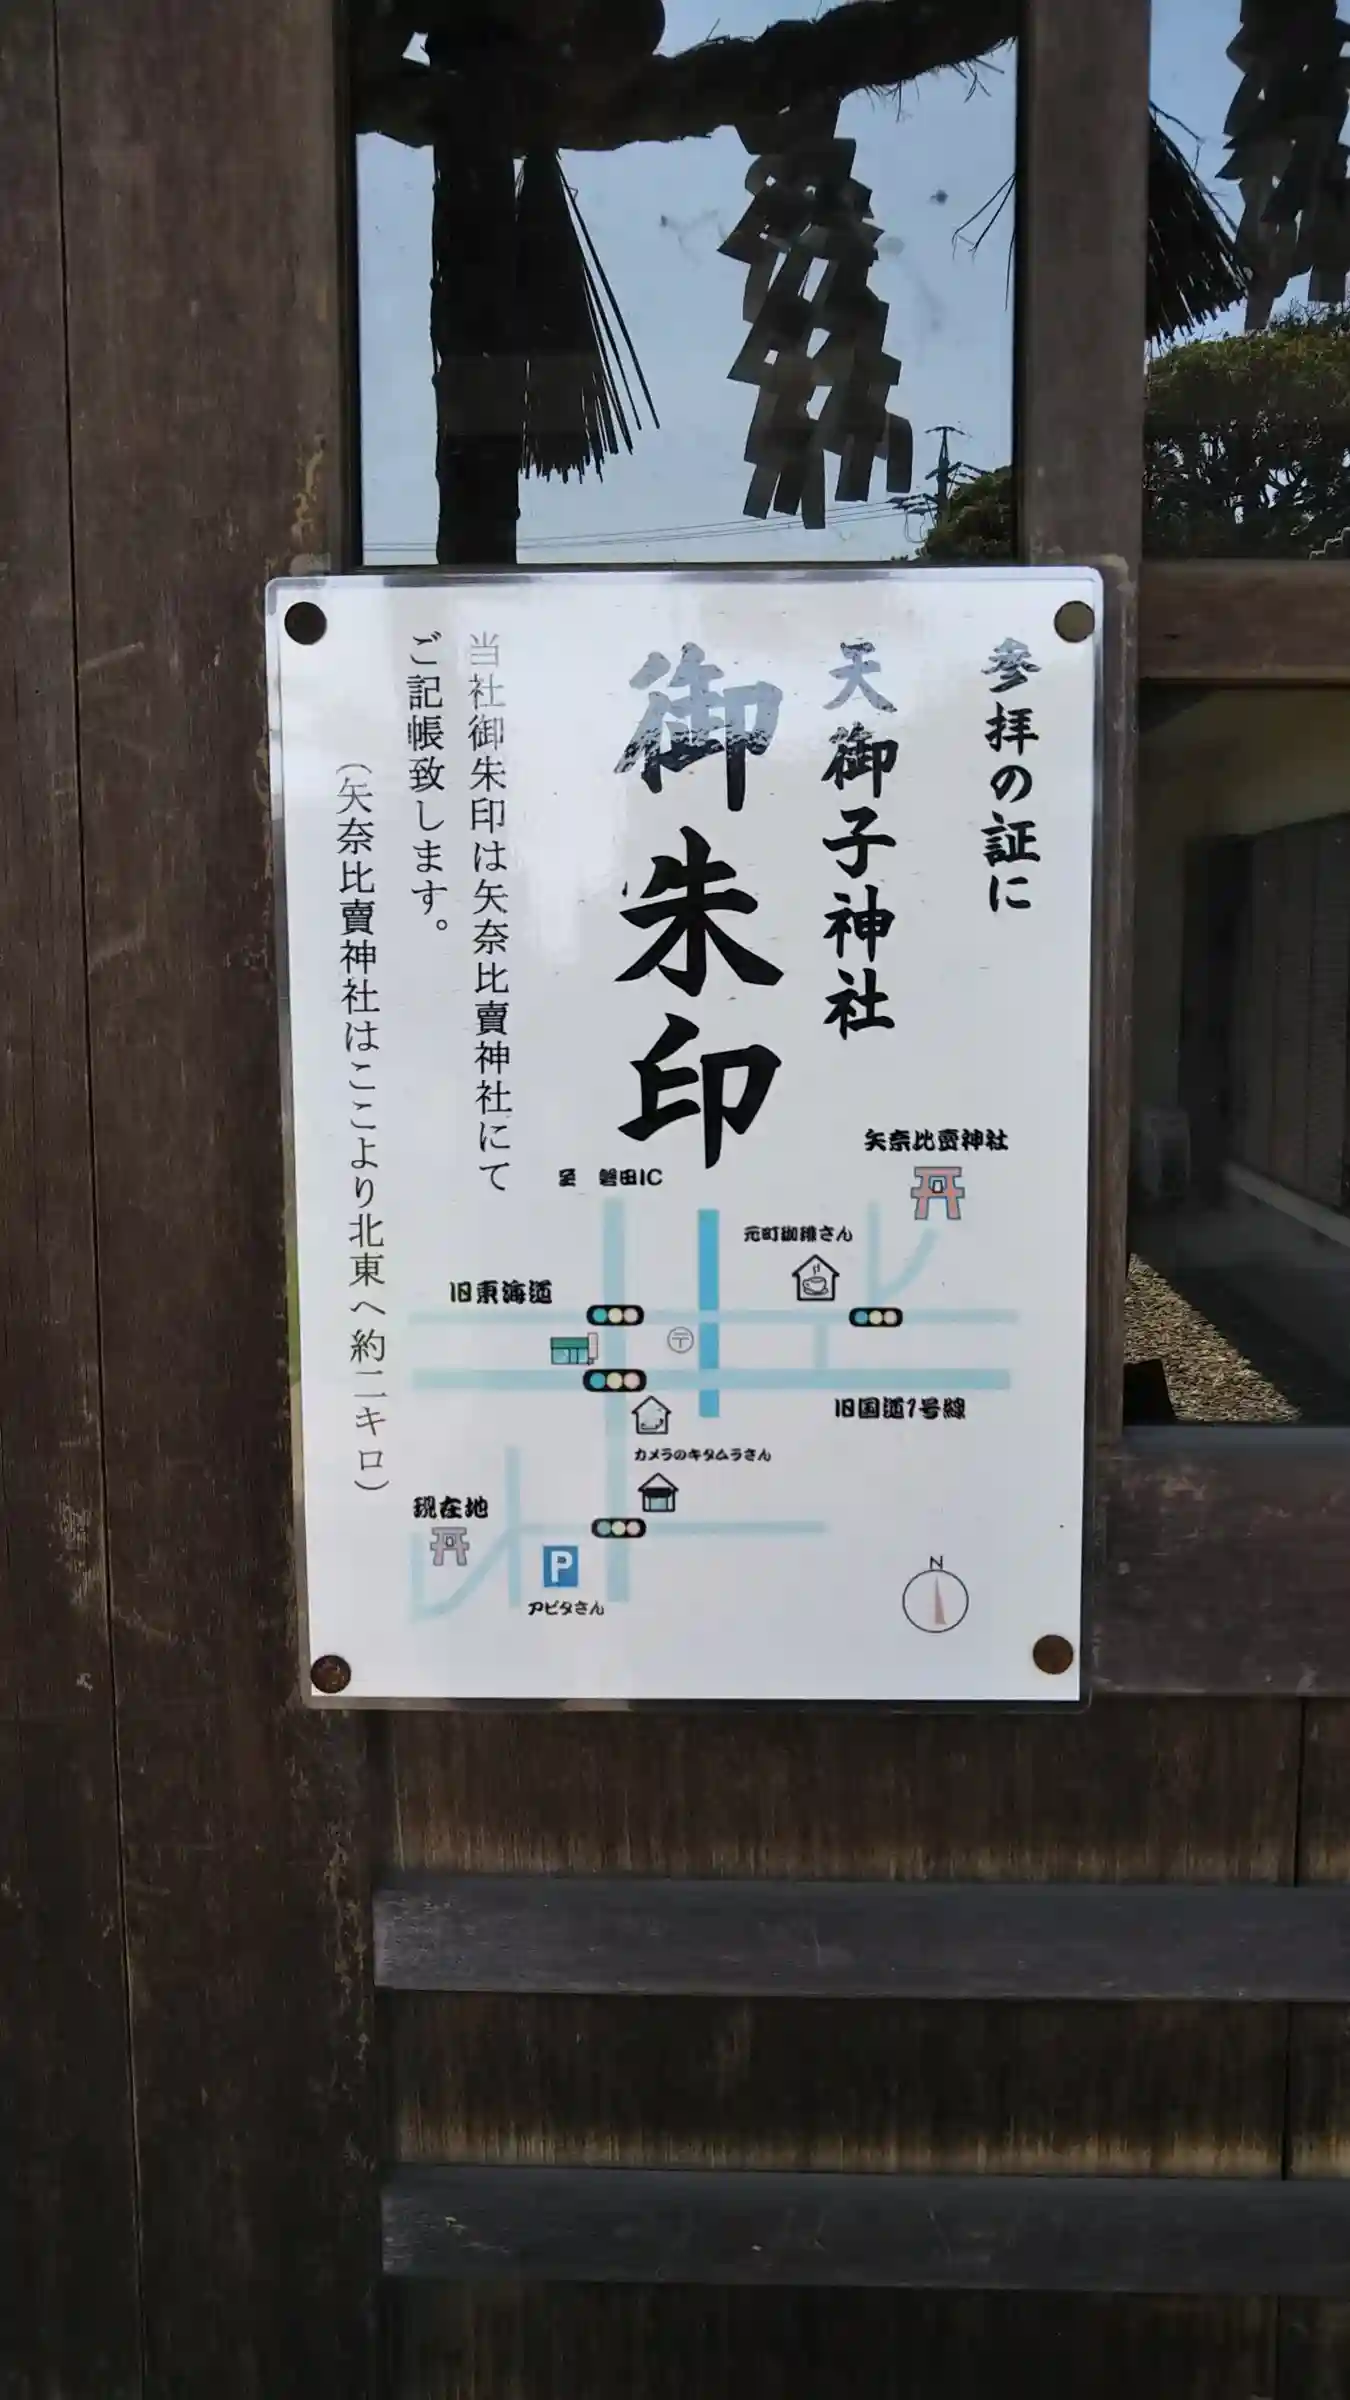 参拝の証に
天御子神社
御朱印
当社御朱印は矢奈比賣神社にて
ご記帳致します。
（矢奈比賣神社はここより北東へ約二キロ）
矢奈比賣神社
至 磐田IC
元町珈琲さん
旧東海道
〒
旧国道1号線
カメラのキタムラさん
現在地
P
アピタさん
N